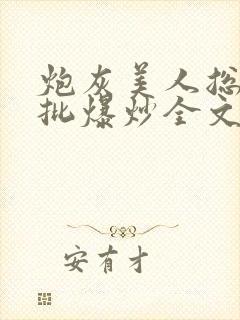 炮灰美人总
批爆炒全文
安有才